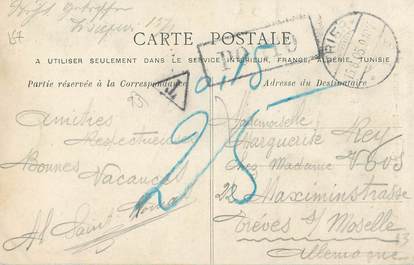 CARTE POSTALE
A UTILISER SEULEMENT DANS LE SERVICE INTÉRIEUR, FRANCE, ALGÉRIE, TUNISIE
Partie réservée à la Correspondance
Adresse du Destinataire
T
0,15
25
Amitiés
Respectueuses
Bonnes
Vacances
Mademoiselle
Marguerite Rey
chez Madame
22 Maximinstrasse
Trèves s/ Moselle
Allemagne